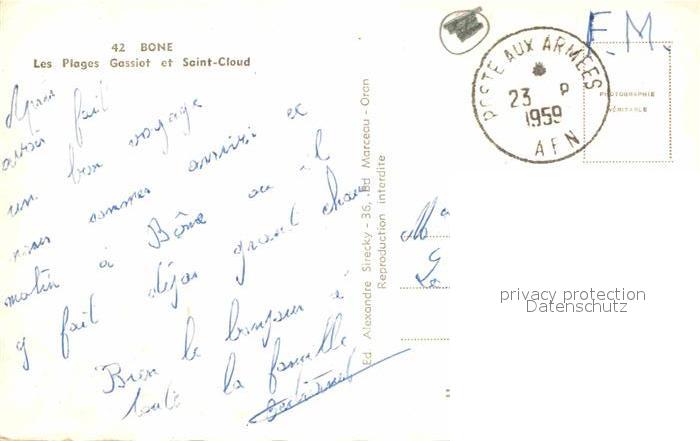 42 BONE
Les Plages Gassiot et Saint-Cloud
Après fait
avoir
un bon voyage
nous sommes arrivés ce
matin à Bône ou il
y fait déjas grand chaud
Bien le bonjour à
toute la famille
Ed. Alexandre Sirecky - 36, Bd Marceau - Oran
Reproduction interdite
POSTE AUX ARMÉES
23 P
1959
AFN
F.M.
PHOTOGRAPHIE
VÉRITABLE
privacy protection
Datenschutz